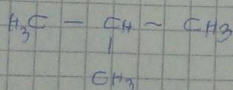 H₃C — CH — CH3
|
CH3